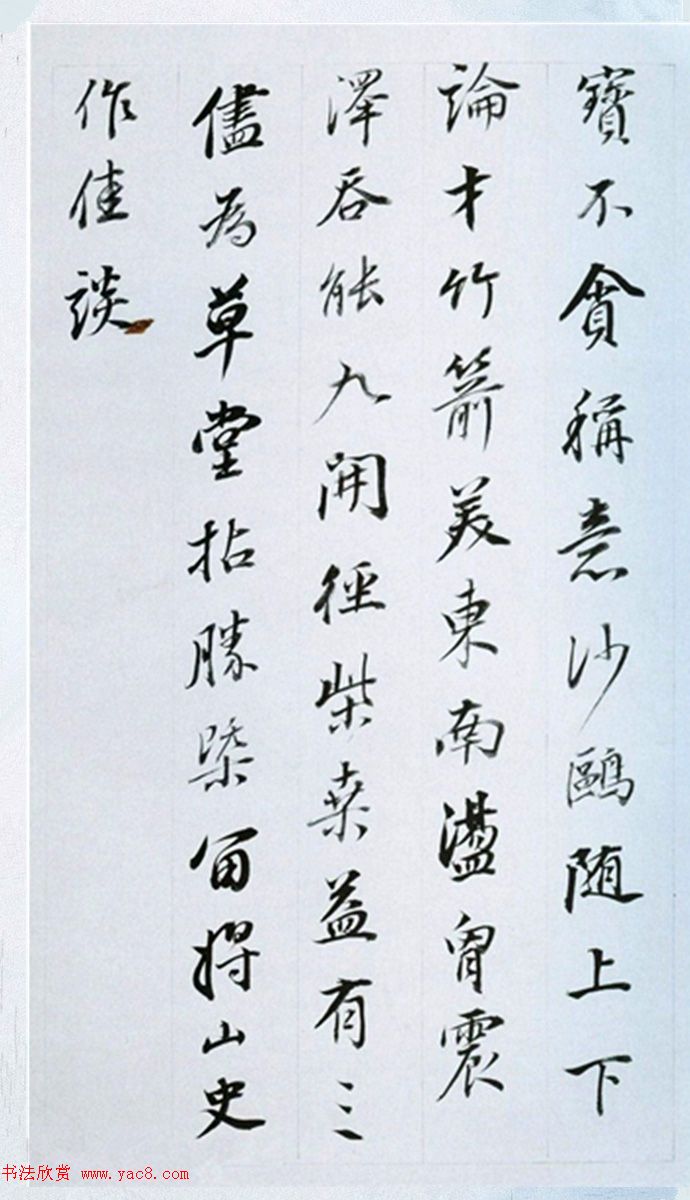 寶不貪稱意沙鷗随上下
論才竹箭美東南盪胷震
澤吞能九開徑柴桒益有三
儘為草堂拈勝槩留得山史
作佳談
书法欣赏 www.yac8.com